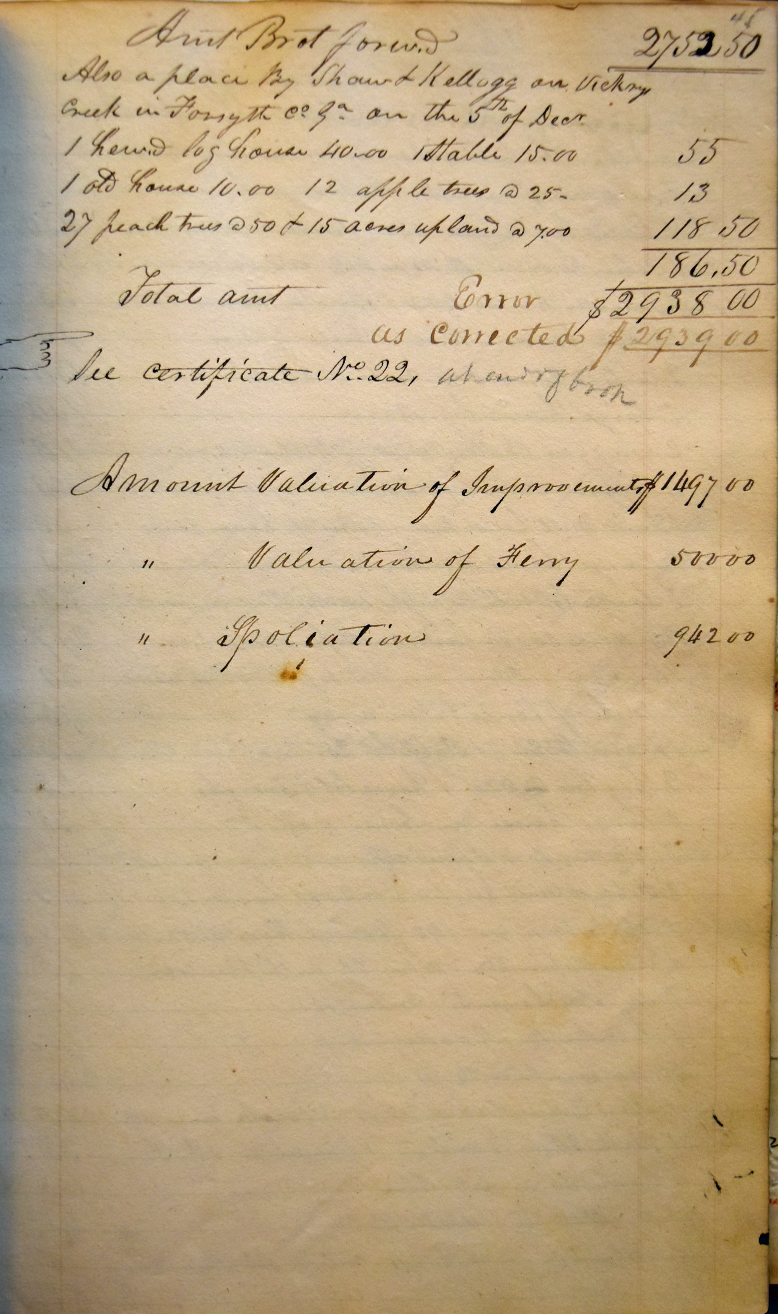 45
Amt Brot forwd 2752 50
Also a place By Shaw & Kellogg on Vickry
Creek in Forsyth co Ga on the 5th of Decr
1 hewd log house 40.00 1 Stable 15.00 55
1 old house 10.00 12 apple trees @ 25- 13
27 peach trees @ 50 & 15 acres upland @ 7.00 118 50
186.50
Total amt Error $2938 00
as Corrected $2939 00
See certificate No. 22, at end of book
Amount Valuation of Improvements $1497 00
" Valuation of Ferry 500 00
" Spoliation 942 00